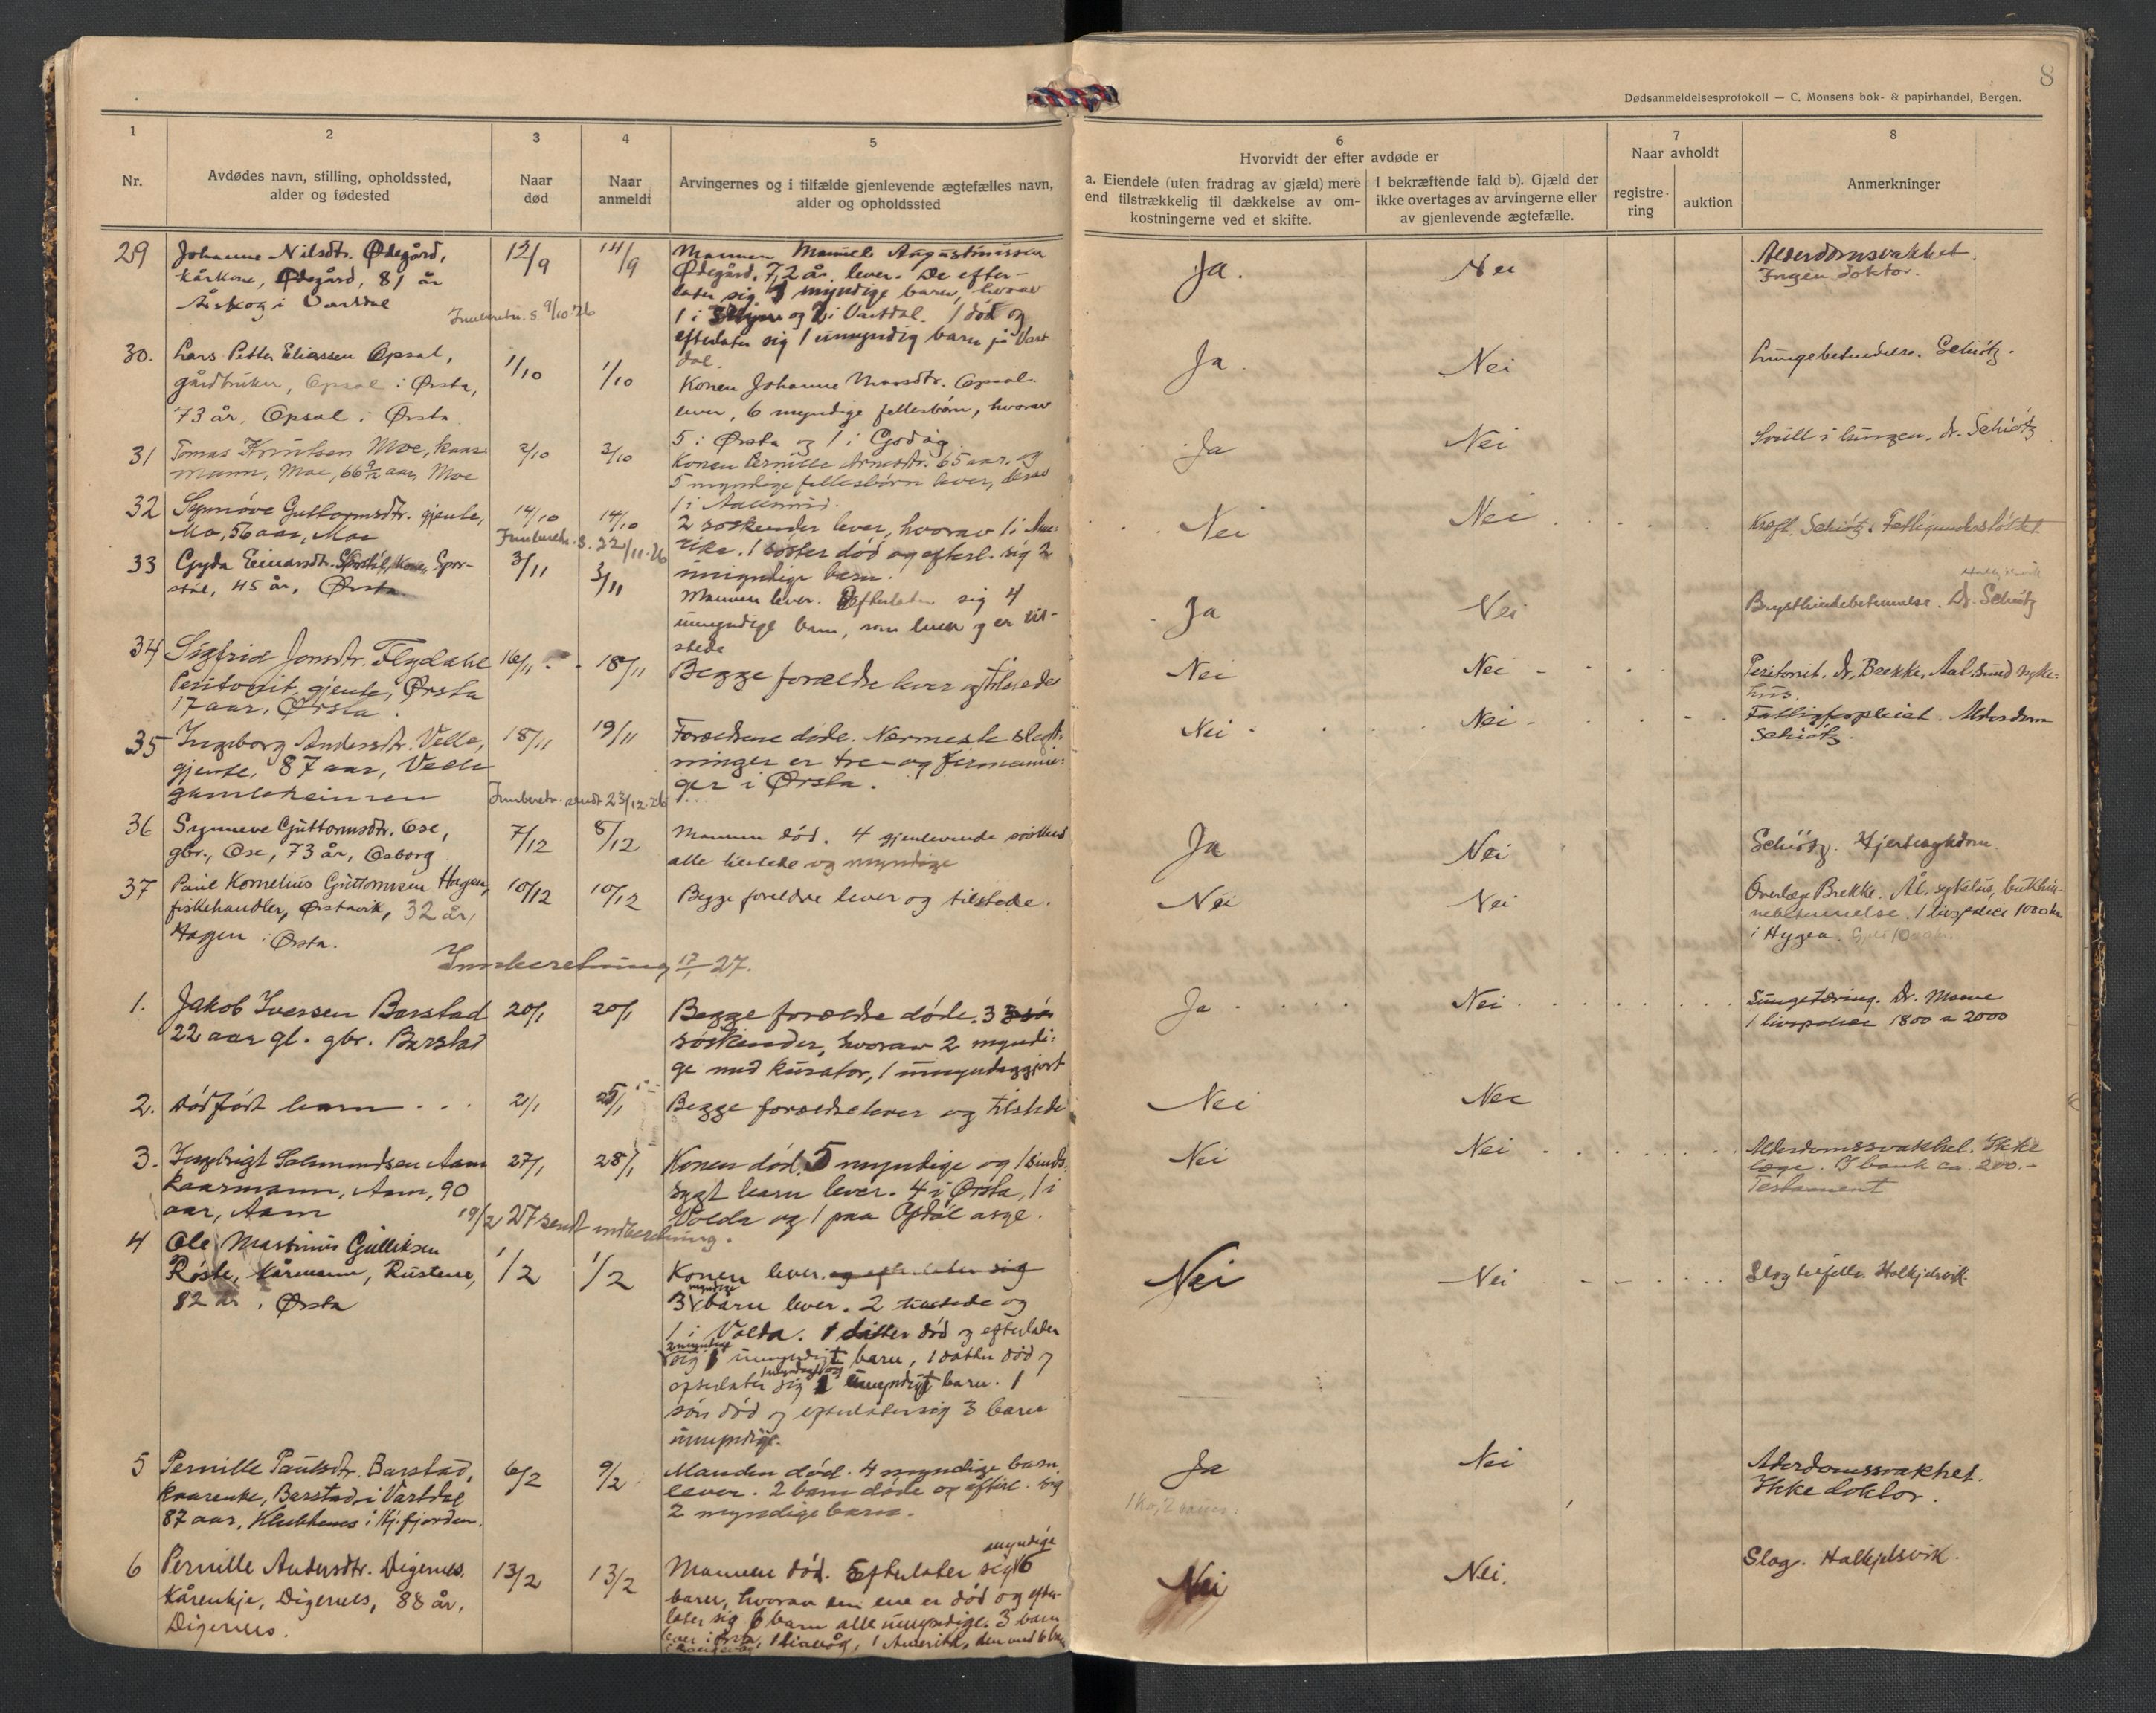 8
Dødsanmeldelsesprotokoll — C. Monsens bok- & papirhandel, Bergen.
1
2
3
4
5
6
7
8
Nr.
Avdødes navn, stilling, opholdssted,
alder og fødested
Naar
død
Naar
anmeldt
Arvingernes og i tilfælde gjenlevende ægtefælles navn,
alder og opholdssted
Hvorvidt der efter avdøde er
a. Eiendele (uten fradrag av gjæld) mere
end tilstrækkelig til dækkelse av om-
kostningerne ved et skifte.
I bekræftende fald b). Gjæld der
ikke overtages av arvingerne eller
av gjenlevende ægtefælle.
Naar avholdt
registre-
ring
auktion
Anmerkninger
29
Johanne Nilsdtr. Ødegård,
kårkone, Ødegård, 81 år
Åskog i Vartdal
12/9
14/9
Mannen Manuel Augustinussen
Ødegård, 72 år, lever. De efter-
later sig 3 myndige barn, hvorav
1 i og 2 i Vartdal. 1 død og
efterlater sig 1 umyndig barn på Vart
dal.
Ja.
Nei
Alderdomsvakhet.
Ingen doktor.
Innberetn. s. 9/10.26
30.
Lars Petter Eliassen Opsal,
gårdbruker, Opsal i Ørsta,
73 år, Opsal i Ørsta
1/10
1/10
Konen Johanne Opsal
lever, 6 myndige fellesbørn, hvorav
5 i Ørsta og 1 i
Ja.
Nei
Lungebetendelse. Schiøtz.
31
Tomas Knutsen Moe, kaar-
mann, Moe, 66 aar, Moe
2/10
2/10
Konen Pernille 65 aar, og
5 myndige fellesbørn lever, derav
1 i Aalesund.
Ja
Nei
Svull i lungen. dr. Schiøtz
32
Synnøve Guttormsdtr. gjente,
Mo, 56 aar, Moe
14/10
14/10
2 søskender lever, hvorav 1 i Ame-
rika. 1 søster død og efterl. sig 2
umyndige barn.
Nei
Nei
Kræft. Schiøtz. Fattigunderstøttet
Innberetn. s. 22/11.26
33
Gyda Einarsdtr. Sporstøl, Kone, Spor-
støl, 45 år, Ørsta
3/11
3/11
Mannen lever. Efterlater sig 4
umyndige barn, som lever og er til-
stede
Ja
Nei
Brysthindebetennelse. Dr. Schiøtz
34
Sigfrid Jonsdtr. Flydahl
Peritonit, gjente, Ørsta
17 aar, Ørsta.
16/11
18/11
Begge forældre lever og tilstede
Nei
Nei
Peritonit. Dr. Brekke, Aalesund syke-
hus.
35
Ingeborg Andersdtr. Velle,
gjente, 87 aar, Velle
gamleheimen
18/11
19/11
Forældrene døde. Nærmeste slegt-
ninger er tre- og firmennin-
ger i Ørsta.
Nei
Nei
Fattigforpleiet. Alderdom
Schiøtz.
Innberetn. sendt 23/12.26
36
Synneve Guttormsdtr. Ose,
gbr., Ose, 73 år, Osborg
7/12
8/12
Mannen død. 4 gjenlevende søsken
alle tilstede og myndige
Ja
Nei
Schiøtz. Hjertesykdom.
37
Paul Kornelius Guttormsen Hagen,
fiskehandler, Ørstavik, 32 år,
Hagen i Ørsta.
10/12
10/12
Begge foreldre lever og tilstede.
Nei
Nei
Overlæge Brekke. Ål. sykehus, bukhin-
nebetennelse. 1 livspolise 1000 kr.
i Hygea.
Innberetning 17/1 27.
1.
Jakob Iversen Barstad
22 aar gl. gbr. Barstad
20/1
20/1
Begge forældre døde. 3
søskender, hvorav 2 myndi-
ge med kurator, 1 umyndiggjort
Ja
Nei
Lungetæring. Dr. Moene
1 livspolise 1800 a 2000
2.
Dødfødt barn
2/1
25/1
Begge forældre lever og tilstede
Nei
Nei
3.
Ingebrigt Salmundsen Aam
kaarmann, Aam, 90
aar, Aam
27/1
28/1
Konen død. 5 myndige og 1 sinds-
sygt barn lever. 4 i Ørsta, 1 i
Volda og 1 paa Opdøl asyl.
Nei
Nei
Alderdomssvakhet. Ikke
læge. I bank ca. 200.-
Testament
19/2 27 sendt indberetning.
4
Ole Martinus Gulliksen
Røste, kårmann, Rustene,
82 år, Ørsta
1/2
1/2
Konen lever og efterlater sig
3 myndige barn lever. 2 tilstede og
1 i Volda. 1 datter død og efterlater
sig 2 myndige umyndigt barn, 1 datter død og
efterlater sig 1 myndigt og umyndigt barn. 1
søn død og efterlater sig 3 barn
umyndige.
Nei
Nei
Slagtilfelle. Halkjelsvik.
5
Pernille Paulsdtr. Barstad,
kaarenke, Barstad i Vartdal
87 aar, i Hj.fjorden.
6/2
9/2
Manden død. 4 myndige barn
lever. 2 barn døde og efterl. sig
2 myndige barn.
Ja
1 ko, 2 sauer.
Nei
Alderdomssvakhet.
Ikke doktor.
6
Pernille Andersdtr. Digernes.
Kårenkje, Digernes, 88 år,
Digernes.
13/2
13/2
Mannen død. Efterlater sig 6 myndige
barn, hvorav den ene er død og efter-
later sig 6 barn alle umyndige. 3 barn
lever i Ørsta, 1 1 Amerika, den med 6 barn
Nei
Nei.
Slag. Halkjelsvik.